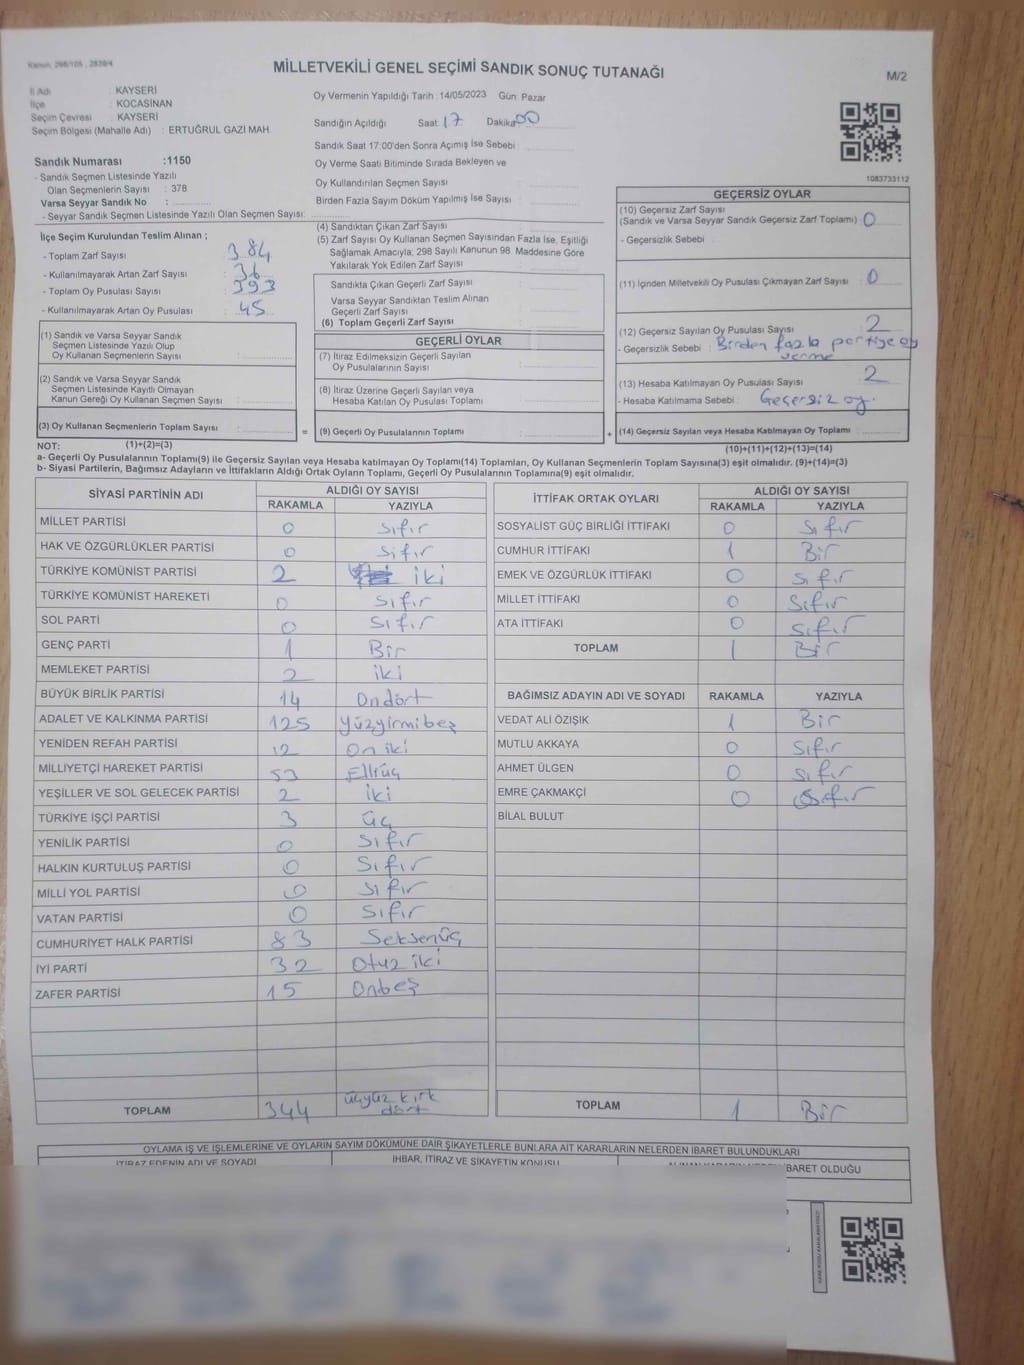 Kanun: 298/105 , 2839/4
MİLLETVEKİLİ GENEL SEÇİMİ SANDIK SONUÇ TUTANAĞI
M/2
İl Adı : KAYSERİ
İlçe : KOCASİNAN
Seçim Çevresi : KAYSERİ
Seçim Bölgesi (Mahalle Adı) : ERTUĞRUL GAZİ MAH.
Sandık Numarası :1150
- Sandık Seçmen Listesinde Yazılı
Olan Seçmenlerin Sayısı : 378
Varsa Seyyar Sandık No :
- Seyyar Sandık Seçmen Listesinde Yazılı Olan Seçmen Sayısı:
Oy Vermenin Yapıldığı Tarih : 14/05/2023 Gün: Pazar
Sandığın Açıldığı Saat: 17 Dakika: 00
Sandık Saat 17:00'den Sonra Açımış İse Sebebi :
Oy Verme Saati Bitiminde Sırada Bekleyen ve
Oy Kullandırılan Seçmen Sayısı :
Birden Fazla Sayım Döküm Yapılmış İse Sayısı :
1083733112
İlçe Seçim Kurulundan Teslim Alınan ;
- Toplam Zarf Sayısı : 384
- Kullanılmayarak Artan Zarf Sayısı : 36
- Toplam Oy Pusulası Sayısı : 393
- Kullanılmayarak Artan Oy Pusulası : 45
(1) Sandık ve Varsa Seyyar Sandık
Seçmen Listesinde Yazılı Olup
Oy Kullanan Seçmenlerin Sayısı :
(2) Sandık ve Varsa Seyyar Sandık
Seçmen Listesinde Kayıtlı Olmayan
Kanun Gereği Oy Kullanan Seçmen Sayısı :
(3) Oy Kullanan Seçmenlerin Toplam Sayısı :
(4) Sandıktan Çıkan Zarf Sayısı :
(5) Zarf Sayısı Oy Kullanan Seçmen Sayısından Fazla İse, Eşitliği
Sağlamak Amacıyla, 298 Sayılı Kanunun 98. Maddesine Göre
Yakılarak Yok Edilen Zarf Sayısı :
Sandıkta Çıkan Geçerli Zarf Sayısı :
Varsa Seyyar Sandıktan Teslim Alınan
Geçerli Zarf Sayısı :
(6) Toplam Geçerli Zarf Sayısı :
GEÇERLİ OYLAR
(7) İtiraz Edilmeksizin Geçerli Sayılan
Oy Pusulalarının Sayısı :
(8) İtiraz Üzerine Geçerli Sayılan veya
Hesaba Katılan Oy Pusulası Toplamı :
= (9) Geçerli Oy Pusulalarının Toplamı :
GEÇERSİZ OYLAR
(10) Geçersiz Zarf Sayısı
(Sandık ve Varsa Seyyar Sandık Geçersiz Zarf Toplamı) : 0
- Geçersizlik Sebebi :
(11) İçinden Milletvekili Oy Pusulası Çıkmayan Zarf Sayısı : 0
(12) Geçersiz Sayılan Oy Pusulası Sayısı : 2
- Geçersizlik Sebebi : Birden fazla partiye oy
verme
(13) Hesaba Katılmayan Oy Pusulası Sayısı : 2
- Hesaba Katılmama Sebebi : Geçersiz oy.
+ (14) Geçersiz Sayılan veya Hesaba Katılmayan Oy Toplamı :
NOT: (1)+(2)=(3)
(10)+(11)+(12)+(13)=(14)
a- Geçerli Oy Pusulalarının Toplamı(9) ile Geçersiz Sayılan veya Hesaba katılmayan Oy Toplamı(14) Toplamları, Oy Kullanan Seçmenlerin Toplam Sayısına(3) eşit olmalıdır. (9)+(14)=(3)
b- Siyasi Partilerin, Bağımsız Adayların ve İttifakların Aldığı Ortak Oyların Toplamı, Geçerli Oy Pusulalarının Toplamına(9) eşit olmalıdır.
SİYASİ PARTİNİN ADI ALDIĞI OY SAYISI
RAKAMLA YAZIYLA
MİLLET PARTİSİ 0 Sıfır
HAK VE ÖZGÜRLÜKLER PARTİSİ 0 Sıfır
TÜRKİYE KOMÜNİST PARTİSİ 2 iki
TÜRKİYE KOMÜNİST HAREKETİ 0 Sıfır
SOL PARTİ 0 Sıfır
GENÇ PARTİ 1 Bir
MEMLEKET PARTİSİ 2 iki
BÜYÜK BİRLİK PARTİSİ 14 Ondört
ADALET VE KALKINMA PARTİSİ 125 Yüzyirmibeş
YENİDEN REFAH PARTİSİ 12 On iki
MİLLİYETÇİ HAREKET PARTİSİ 53 Elliüç
YEŞİLLER VE SOL GELECEK PARTİSİ 2 iki
TÜRKİYE İŞÇİ PARTİSİ 3 üç
YENİLİK PARTİSİ 0 Sıfır
HALKIN KURTULUŞ PARTİSİ 0 Sıfır
MİLLİ YOL PARTİSİ 0 Sıfır
VATAN PARTİSİ 0 Sıfır
CUMHURİYET HALK PARTİSİ 83 Seksenüç
İYİ PARTİ 32 Otuz iki
ZAFER PARTİSİ 15 Onbeş
TOPLAM 344 üçyüz kırk
dört
İTTİFAK ORTAK OYLARI ALDIĞI OY SAYISI
RAKAMLA YAZIYLA
SOSYALİST GÜÇ BİRLİĞİ İTTİFAKI 0 Sıfır
CUMHUR İTTİFAKI 1 Bir
EMEK VE ÖZGÜRLÜK İTTİFAKI 0 Sıfır
MİLLET İTTİFAKI 0 Sıfır
ATA İTTİFAKI 0 Sıfır
TOPLAM 1 Bir
BAĞIMSIZ ADAYIN ADI VE SOYADI RAKAMLA YAZIYLA
VEDAT ALİ ÖZIŞIK 1 Bir
MUTLU AKKAYA 0 Sıfır
AHMET ÜLGEN 0 Sıfır
EMRE ÇAKMAKÇİ 0 Sıfır
BİLAL BULUT
TOPLAM 1 Bir
OYLAMA İŞ VE İŞLEMLERİNE VE OYLARIN SAYIM DÖKÜMÜNE DAİR ŞİKAYETLERLE BUNLARA AİT KARARLARIN NELERDEN İBARET BULUNDUKLARI
İTİRAZ EDENİN ADI VE SOYADI İHBAR, İTİRAZ VE ŞİKAYETİN KONUSU İBARET OLDUĞU